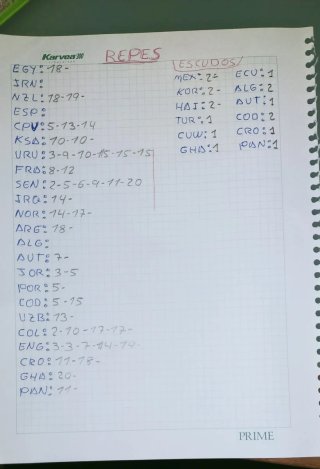 Karvea
REPES
EGY: 18-
IRN:
NZL: 18-19-
ESP:
CPV: 5-13-14
KSA: 10-10-
URU: 3-9-10-15-15-15
FRA: 8-12
SEN: 2-5-6-9-11-20
IRQ: 14-
NOR: 14-17-
ARG: 18-
ALG:
AUT: 7-
JOR: 3-5
POR: 5-
COD: 5-15
UZB: 13-
COL: 2-10-17-17-
ENG: 3-3-7-14-14-
CRO: 11-18-
GHA: 20-
PAN: 11-
ESCUDOS
MEX: 2-
KOR: 2-
HAI: 2-
TUR: 1
CUW: 1
GHA: 1
ECU: 1
ALG: 2
AUT: 1
COD: 2
CRO: 1
PAN: 1
PRIME